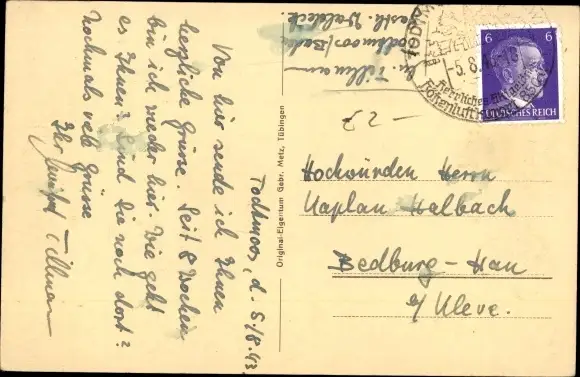 Todtmoos, d. 5/8.43
Von hier sende ich Ihnen
herzliche Grüsse. Seit 8 Wochen
bin ich wieder hier. Wie geht
es Ihnen? Sind Sie noch dort?
Nochmals viele Grüsse
Ihr Tillman
Original-Eigentum Gebr. Metz, Tübingen
Tillman
Todtmoos/Baden
Waldeck.
TODTM
-5.8.
Herrliches
Höhenluftkurort
6 6
DEUTSCHES REICH
Hochwürden Herrn
Kaplan Halbach
Bedburg-Hau
b/Kleve.